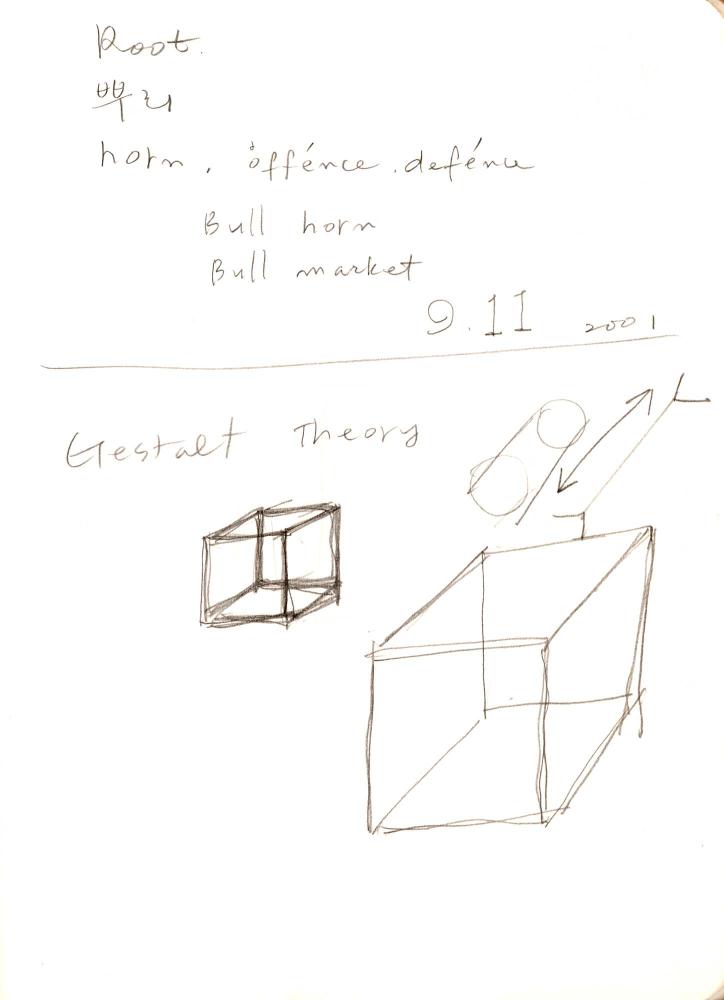 Root.
뿌리
horn, öffénce. defénce
Bull horn
Bull market
9.11 2001
Gestalt Theory